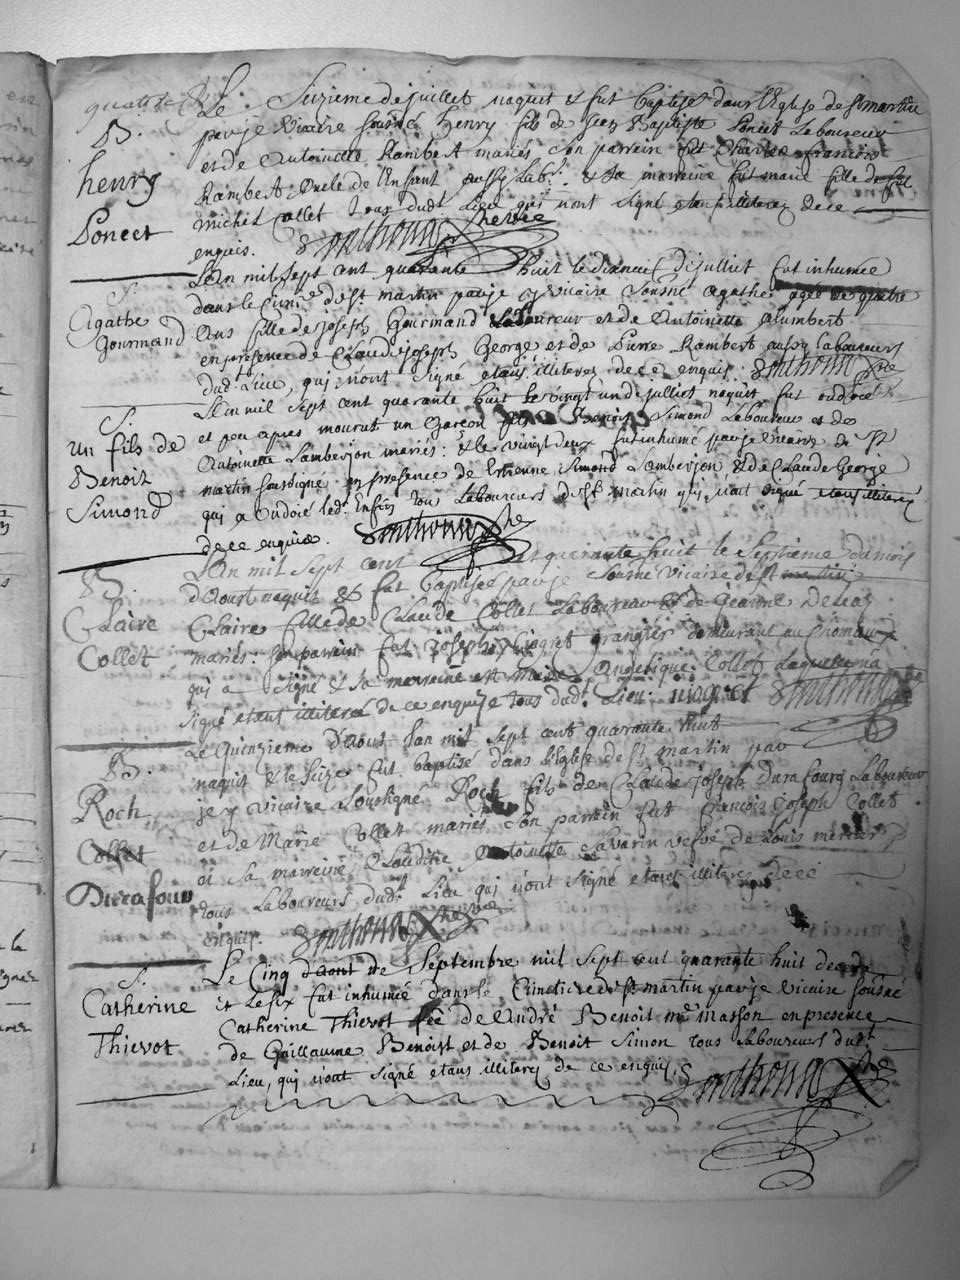 B.
henry
Poncet
Le Seizieme de juillet naquit & fut baptisé dans l'Eglise de St martin
par je vicaire sousné henry fils de jean Baptiste Poncet Laboureur
et de Antoinette Rambert mariés son parrein fut Charles francois
Rambert Oncle de l'Enfant aussy Labr. & sa marreine fut marie fille de
michel Collet tous dudt Lieu qui n'ont signé etans illiterez de ce
enquis.
S.
Agathe
Gourmand
L'An mil sept cent quarante huit le dixneuf de juillet fut inhumée
dans le Cimre de St martin par je vicaire sousné agathe agée de quatre
Ans fille de joseph Gourmand Laboureur et de Antoinette Humbert
en presence de Claude joseph George et de Pierre Rambert aussy Laboureurs
dud. Lieu, qui n'ont signé etans illiterez de ce enquis.
S.
un fils de
Benoit
Simond
L'An mil sept cent quarante huit le vingt un de juilliet naquit, fut ondoié
et peu apres mourut un Garcon fils de Benoit Simond Laboureur et de
Antoinette Lamberjon mariés: & le vingt deux fut inhumé par je vicaire de St
martin sousigné en presence de Etienne Simond Lamberjon & de Claude George
qui a Ondoié led. Enfan tous Laboureurs de St martin qui n'ont signé etans illiterez
de ce enquis.
B.
Claire
Collet
L'An mil sept cent quarante huit le septieme du mois
d'Aoust naquit & fut baptisée par je sousné vicaire de St martin
Claire fille de Claude Collet Laboureur & de Jeanne
mariés: son parrein fut joseph granger demeurant au
qui a signé & sa marreine est Marie Angelique Collet laquelle n'a
signé etant illiterée de ce enquise tous dudt Lieu.
B.
Roch
Collet
Durafour
Le Quinzieme d'Aout l'an mil sept cent quarante huit
naquit & le seize fut baptisé dans l'Eglise de St martin par
je vicaire sousigné Roch fils de Claude joseph Durafourg Laboureur
et de Marie Collet mariés son parrein fut francois joseph Collet
& sa marreine Claudine Antoinette Savarin vefve de Louis mercier
tous Laboureurs dudt Lieu qui n'ont signé etans illiterez de ce
enquis.
S.
Catherine
Thievot
Le Cinq d'aout de Septembre mil sept cent quarante huit deceda
et le six fut inhumée dans le Cimetiere de St martin par je vicaire sousné
Catherine Thievot fée de André Benoit me masson en presence
de Guillaume Benoist et de Benoit Simon tous Laboureurs dudt
Lieu, qui n'ont signé etans illiterez de ce enquis.